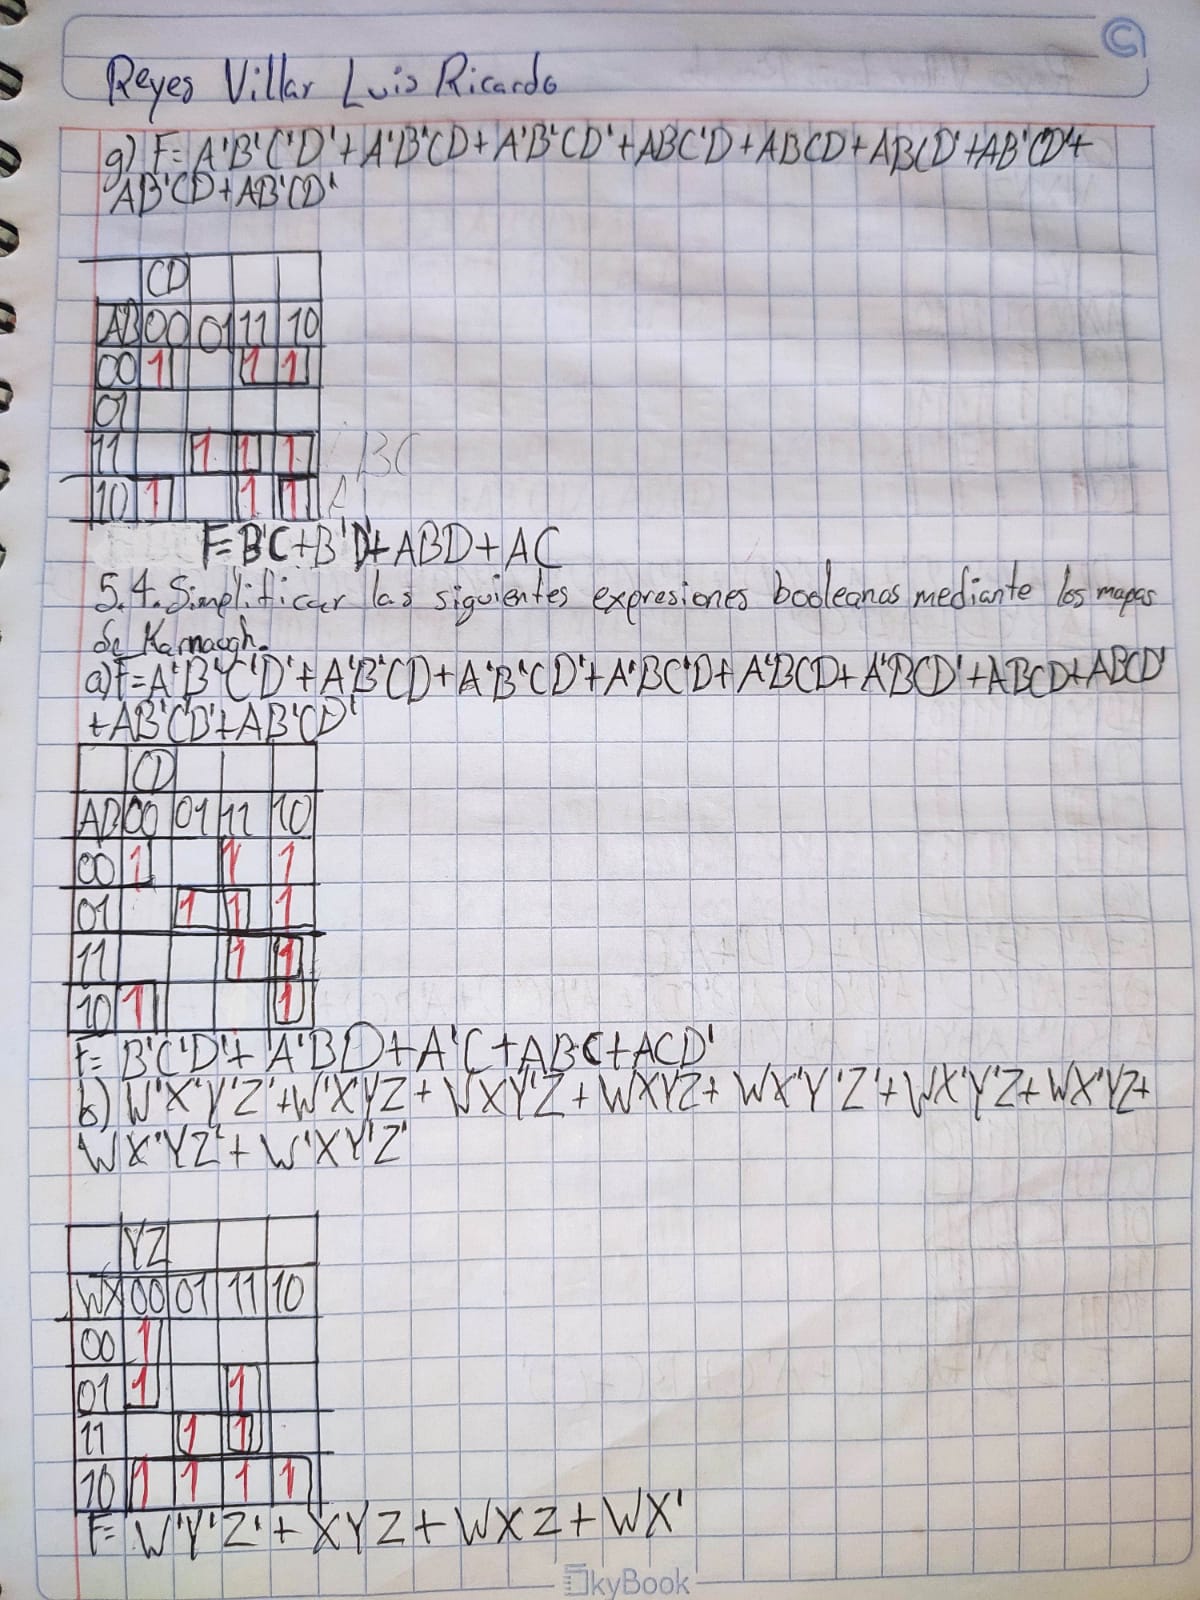 Reyes Villar Luis Ricardo
g) F= A'B'C'D'+A'B'CD+A'B'CD'+ABC'D+ABCD+ABCD'+AB'C'D'+
AB'CD+AB'CD'
CD
AB 00 01 11 10
00 1 1 1
01
11 1 1 1 BC
10 1 1 1
F=B'C+B'D'+ABD+AC
5.4. Simplificar las siguientes expresiones booleanas mediante los mapas
de Karnaugh.
a)F=A'B'C'D'+A'B'CD+A'B'CD'+A'BC'D+A'BCD+A'BCD'+ABCD+ABCD'
+AB'C'D'+AB'CD'
CD
AB 00 01 11 10
00 1 1 1
01 1 1 1
11 1 1
10 1 1
F= B'C'D'+ A'BD+A'C+ABC+ACD'
b) W'X'Y'Z'+W'XYZ+WXY'Z+WXYZ+WX'Y'Z'+WX'Y'Z+WX'YZ+
WX'YZ'+W'XY'Z'
YZ
WX 00 01 11 10
00 1
01 1 1
11 1 1
10 1 1 1 1
F= W'Y'Z'+XYZ+WXZ+WX'
SkyBook